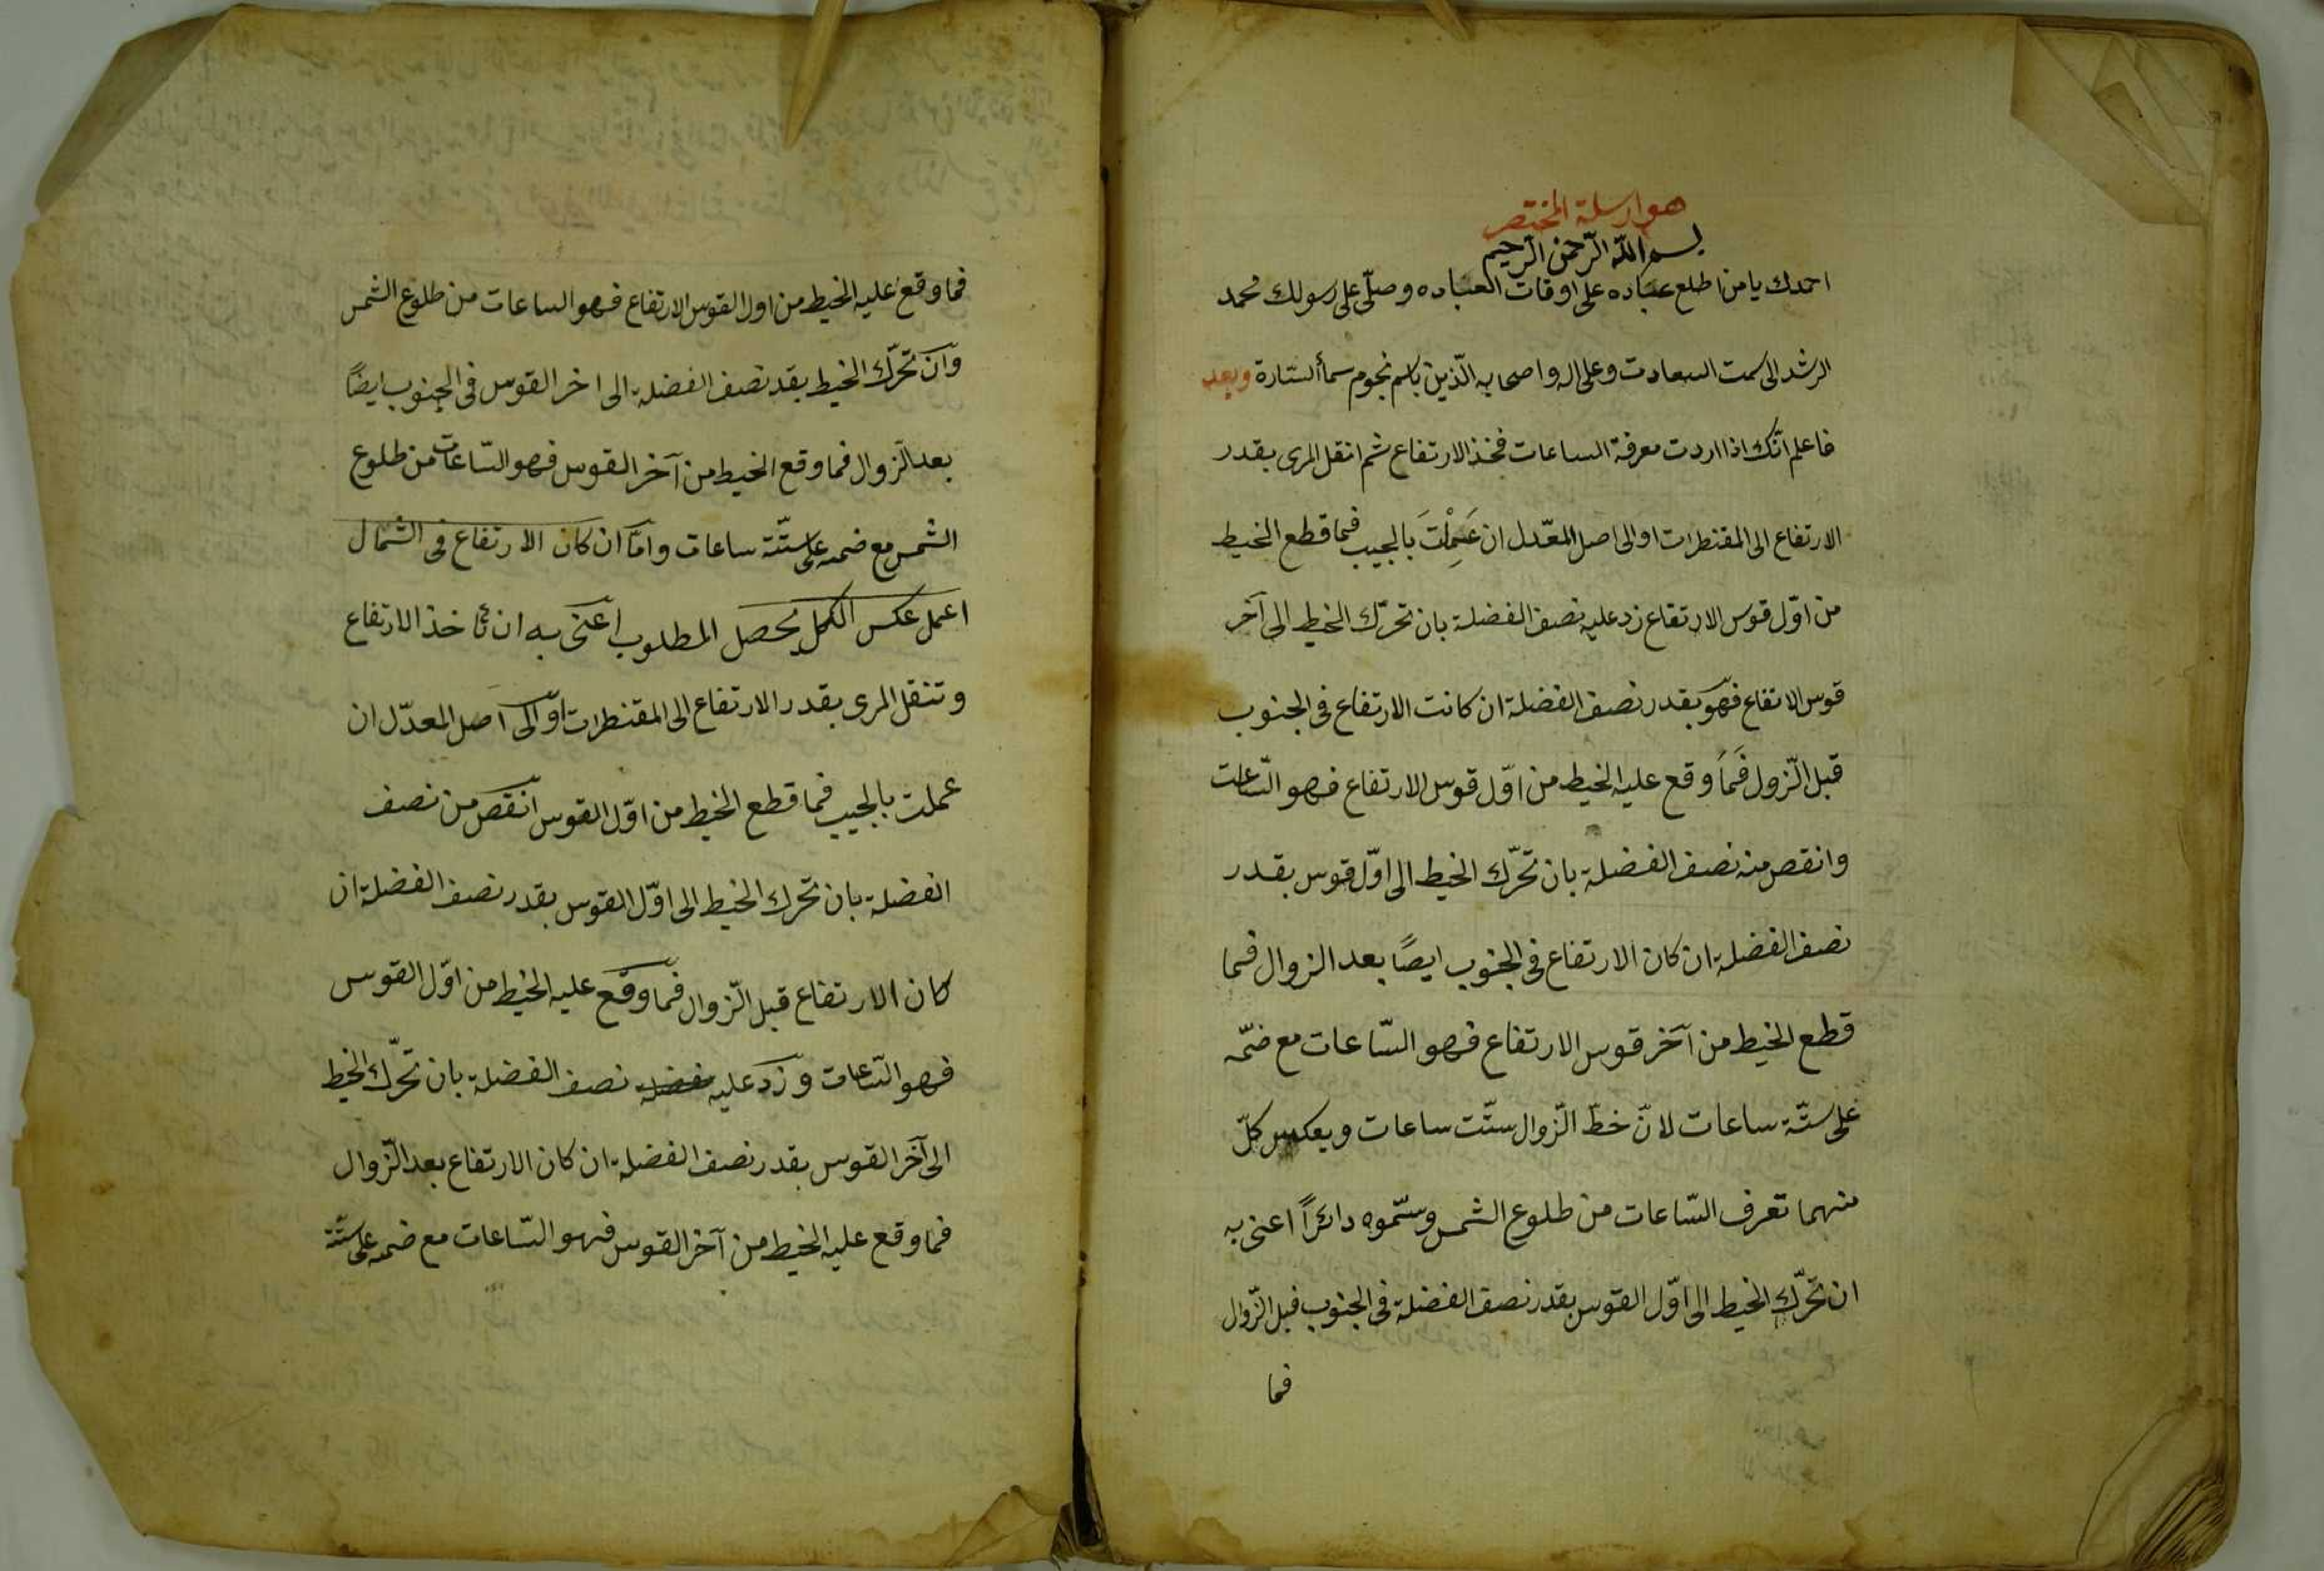 هو ارسلة المختصر
بسم الله الرّحمن الرّحيم
احمدك يا من اطلع عباده على اوقات العباده وصلّى على رسولك محمد
الرشد الى سمت السعادت وعلى اله واصحابه الّذين بكم نجوم سمأ الستارة وبعد
فاعلم انّك اذا اردت معرفة الساعات فخذ الارتفاع ثم انقل المرى بقدر
الارتفاع الى المقنطرات او الى اصل المعّدل ان عَمِلْتَ بالجيب فما قطع الخيط
من اوّل قوس الارتفاع زد عليه نصف الفضلة بان تحرّك الخيط الى آخر
قوس الاتفاع فهو بقدر نصف الفضلة ان كانت الارتفاع فى الجنوب
قبل الّزول فَمَا وقع عليه الخيط من اوّل قوس الارتفاع فهو السّاعات
وانقص منه نصف الفضلة بان تحّرك الخيط الى اوّل قوس بقدر
نصف الفضلة ان كان الارتفاع فى الجنوب ايضًا بعد الزوال فما
قطع الخيط من آخر قوس الارتفاع فهو السّاعات مع ضمّه
على ستّة ساعات لانّ خطّ الزّوال ستّت ساعات وبعكس كلّ
منهما تعرف السّاعات من طلوع الشمس وسمّوه دائرًا اعنى به
ان تحرّك الخيط الى اوّل القوس بقدر نصف الفضلة فى الجنوب قبل الزّوال
فما
فما وقع عليه الخيط من اول القوس الارتفاع فهو الساعات من طلوع الشمس
وان تحرّك الخيط بقد نصف الفضلة الى اخر القوس فى الجنوب ايضًا
بعد الزوال فما وقع الخيط من آخر القوس فهو السّاعات من طلوع
الشمس مع ضمه على ستّة ساعات وامّا ان كان الارتفاع فى الشمال
اعمل عكس الكل يحصل المطلوب اعنى به ان تأخذ الارتفاع
وتنقل المرى بقدر الارتفاع الى المقنطرات او الى اصل المعدّل ان
عملت بالجيب فما قطع الخيط من اوّل القوس انقص من نصف
الفضلة بان تحرك الخيط الى اوّل القوس بقدر نصف الفضلة ان
كان الارتفاع قبل الزّوال فما وقع عليه الخيط من اوّل القوس
فهو السّاعات وزد عليه نصف الفضلة بان تحرّك الخيط
الى آخر القوس بقدر نصف الفضلة ان كان الارتفاع بعد الزّوال
فما وقع عليه الخيط من آخر القوس فهو السّاعات مع ضمه على ستّة